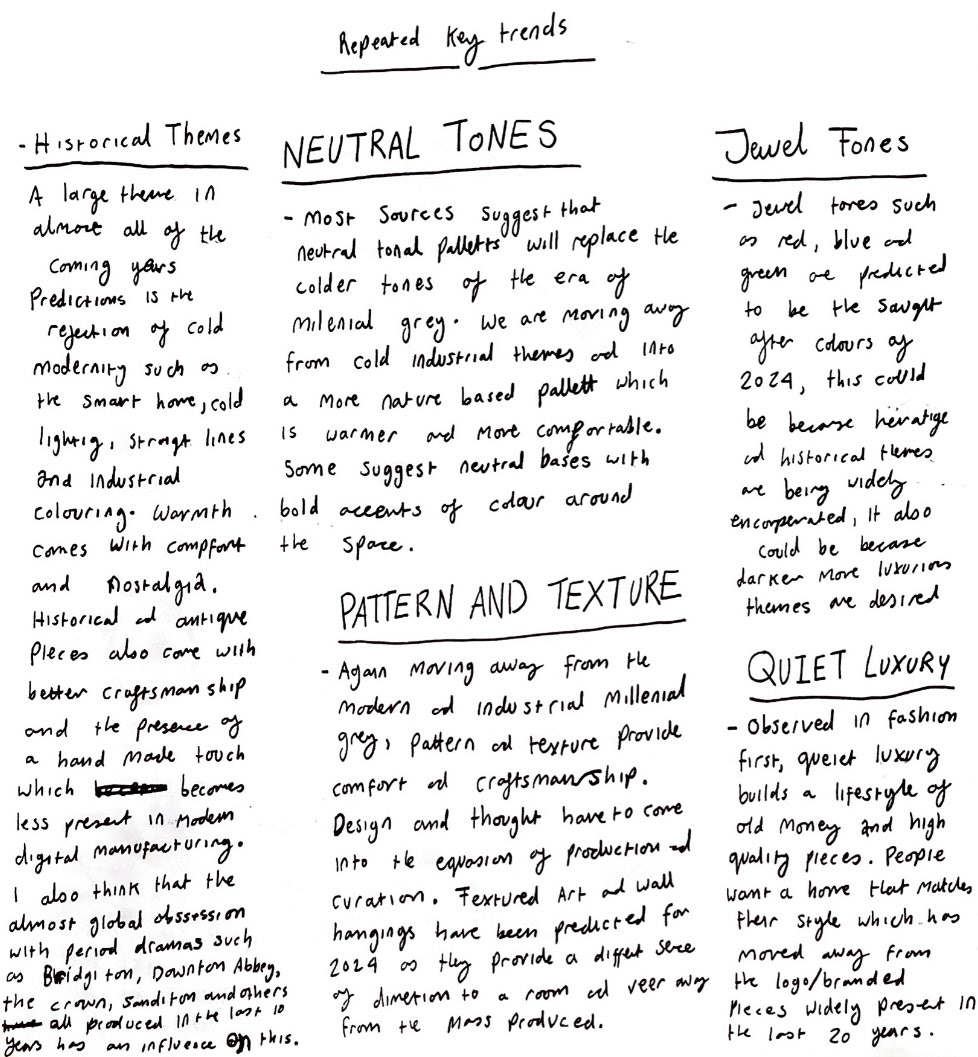 Repeated Key trends
- Historical Themes
A large theme in
almost all of the
coming years
Predictions is the
rejection of cold
modernity such as
the smart home, cold
lightig, straigt lines
and industrial
colouring. Warmth
comes with compfort
and Nostalgia.
Historical ad antique
Pieces also come with
better craftsman ship
and the presence of
a hand made touch
which becomes
less present in modern
digital manufacturing.
I also think that the
almost global obssession
with period dramas such
as Bridgiton, Downton Abbey,
the crown, Sanditon and others
all produced in the last 10
years has an influence on this.
NEUTRAL TONES
- Most sources suggest that
neutral tonal palletts will replace the
colder tones of the era of
milenial grey. We are moving away
from cold industrial themes ad into
a more nature based pallett which
is warmer and more comfortable.
Some suggest neutral bases with
bold accents of colour around
the space.
PATTERN AND TEXTURE
- Again moving away from the
modern ad industrial Millenial
grey, pattern ad texture provide
comfort ad craftsmanship.
Design and thought have to come
into the equasion of production ad
curation. Textured Art ad wall
hangings have been predicted for
2024 as they provide a differt sece
of dimetion to a room ad veer away
from the mass produced.
Jewel Tones
- Jewel tones such
as red, blue ad
green are predicted
to be the saught
after colours of
2024, this could
be because heratige
ad historical themes
are being widely
encorperated, it also
could be becase
darker more luxurios
themes are desired
QUIET LUXURY
- Observed in fashion
first, queiet luxury
builds a lifestyle of
old money and high
quality pieces. People
want a home that matches
their style which has
moved away from
the logo/branded
pieces widely present in
the last 20 years.